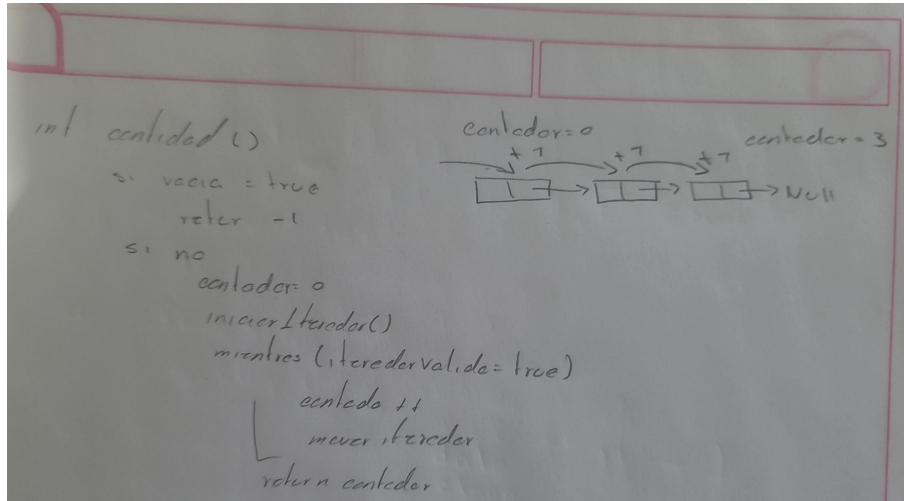 int cantidad ()
si vacia = true
reter -1
si no
contador = 0
iniciarIterador()
mientras (iteradorValido = true)
contado ++
mover iterador
return contador
contador = 0
contador = 3
+1 +1 +1
Null